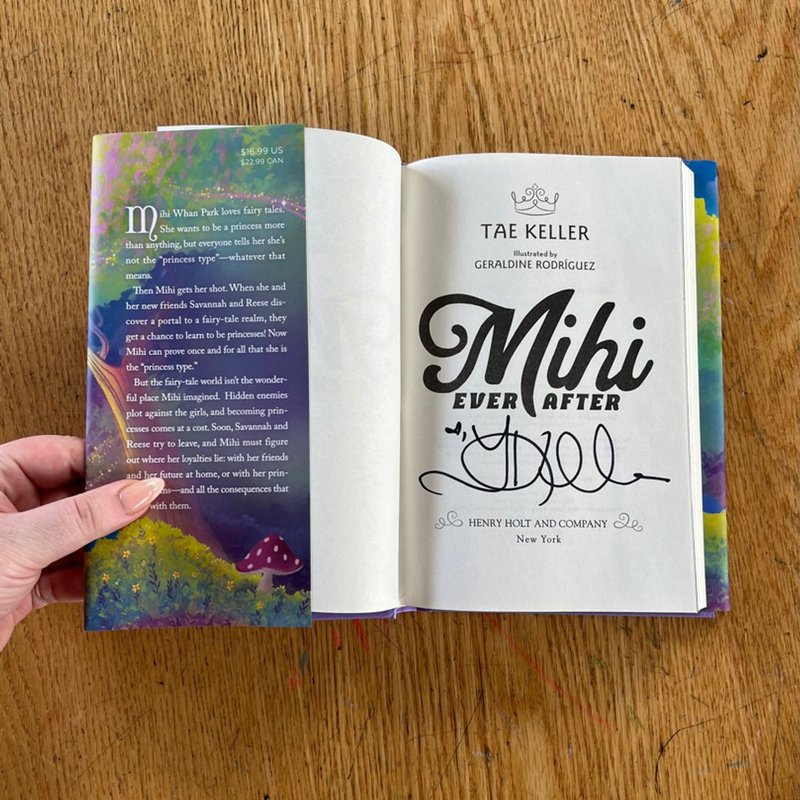 $16.99 US
$22.99 CAN
Mihi Whan Park loves fairy tales.
She wants to be a princess more
than anything, but everyone tells her she's
not the “princess type”—whatever that
means.
Then Mihi gets her shot. When she and
her new friends Savannah and Reese dis-
cover a portal to a fairy-tale realm, they
get a chance to learn to be princesses! Now
Mihi can prove once and for all that she is
the “princess type.”
But the fairy-tale world isn't the wonder-
ful place Mihi imagined. Hidden enemies
plot against the girls, and becoming prin-
cesses comes at a cost. Soon, Savannah and
Reese try to leave, and Mihi must figure
out where her loyalties lie: with her friends
and her future at home, or with her prin-
—and all the consequences that
with them.
TAE KELLER
Illustrated by
GERALDINE RODRÍGUEZ
Mihi
EVER AFTER
HENRY HOLT AND COMPANY
New York